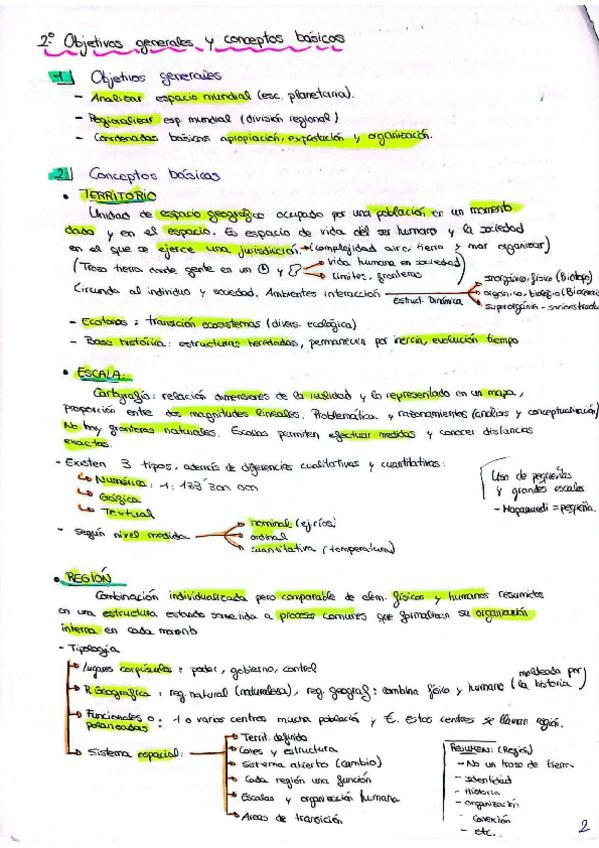 2.º Objetivos generales y conceptos básicos
1 Objetivos generales
- Analizar espacio mundial (esc. planetaria).
- Regionalizar esp. mundial (división regional)
- Coordenadas básicas apropiación, explotación y organización.
2 Conceptos básicos
• TERRITORIO
Unidad de espacio geográfico ocupado por una población en un momento
dado y en el espacio. Es espacio de vida del ser humano y la sociedad
en el que se ejerce una jurisdicción. → (complejidad aire, tierra y mar organizar)
(Trozo tierra donde gente en un y → vida humana en sociedad)
→ límites, fronteras
Circunda al individuo y sociedad. Ambientes interacción
Estruct. Dinámica
→ inorgánico, físico (Biotopo)
→ orgánico, biológico
→ suprorgánico -
- Ecotonos: transición ecosistemas (divers. ecológica)
- Base histórica: estructuras heredadas, permanecen por inercia, evolución tiempo
• ESCALA:
Cartografía: relación dimensiones de la realidad y la representado en un mapa,
proporción entre dos magnitudes lineales. Problemática y razonamientos (análisis y conceptualización)
No hay fronteras naturales. Escalas permiten efectuar medidas y conocer distancias
exactas.
- Existen 3 tipos, además de diferencias cualitativas y cuantitativas:
→ Numérica: 1:
→ Gráfica
→ Textual
Uso de pequeñas
y grandes escalas
- Mapamundi = pequeña.
- según nivel medida
→ nominal
→ ordinal
→ cuantitativa (temperatura)
• REGIÓN
Combinación individualizada pero comparable de elem. físicos y humanos resumidos
en una estructura estando sometida a procesos comunes que formalizan su organización
interna en cada momento
- Tipología
→ Lugares corpúsculos: poder, gobierno, control
→ R. Geográfica: reg. natural (naturaleza), reg. geograf: combina físico y humano (moldeada por la historia)
→ Funcionales o polarizadas: 1 o varios centros mucha población y €. Estos centros se llaman región.
→ Sistema espacial:
→ Territ. definido
→ Cores y estructura
→ Sistema abierto (cambio)
→ Cada región una función
→ Escalas y organización humana
→ Areas de transición
RESUMEN: (Región)
- No un trozo de tierra
- Identidad
- Historia
- organización
- Conexión
- etc..
2